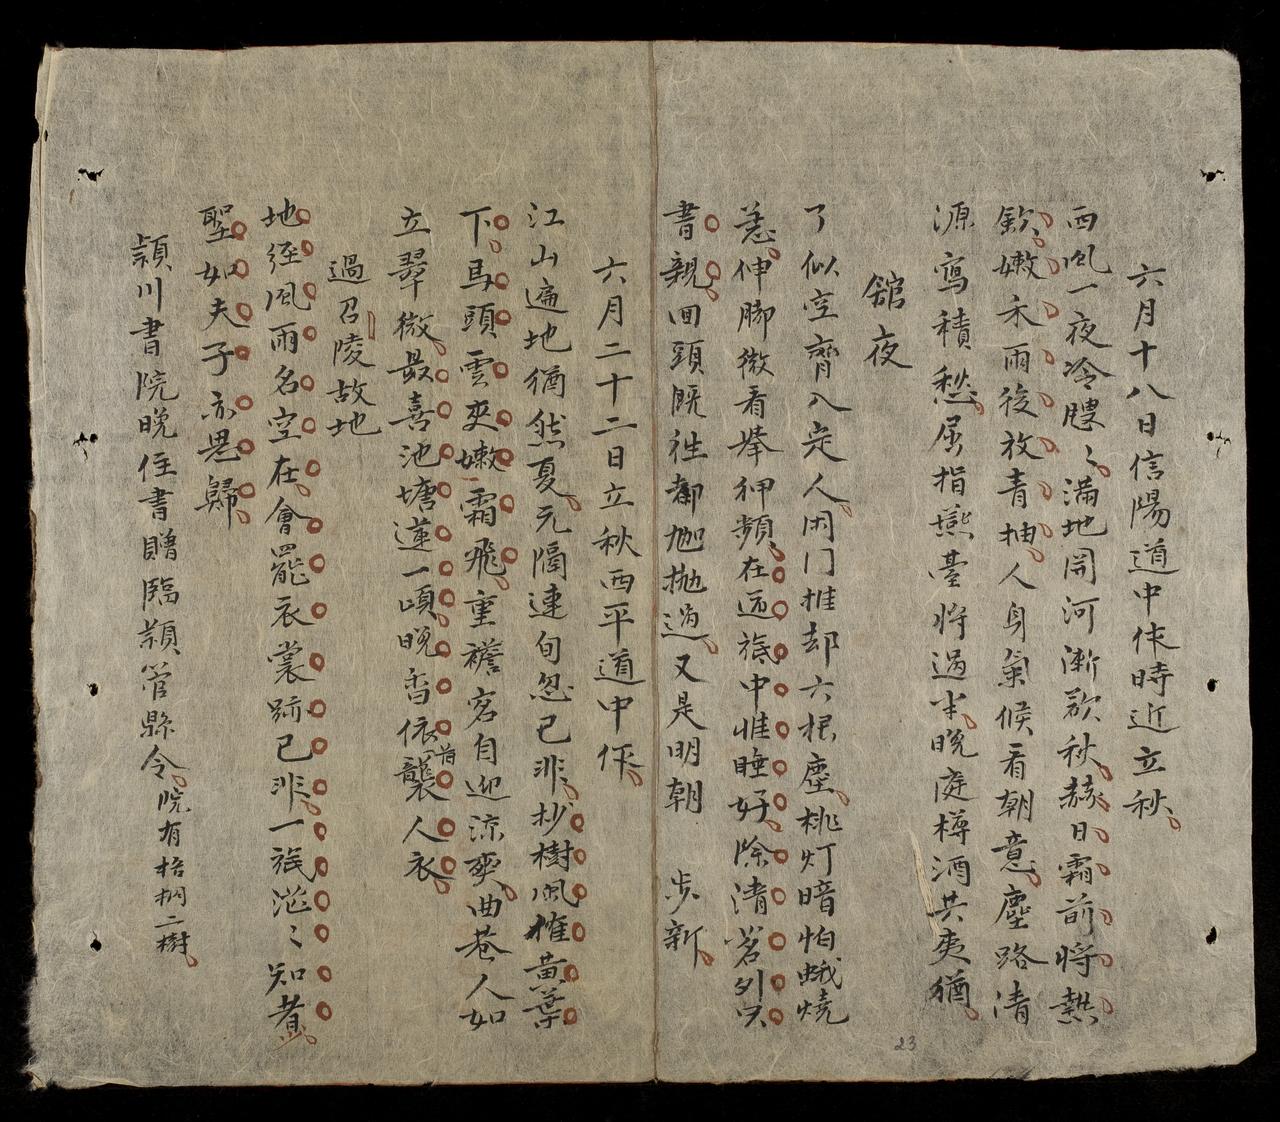 六月十八日信陽道中作時近立秋
西風一夜冷颼〻滿地關河漸欲秋赫日霜前將熱
斂嫩禾雨後放青抽人身氣候看朝意塵路清
源寫積愁屈指燕臺將過半晚庭樽酒共夷猶
舘夜
了似空齋入定人閉门推却六根塵桃灯暗怕蛾燒
恙伸脚微看拳狎頻在逆旅中惟睡好除清茗列
書親回頭既徃都抛過又是明朝 步新
六月二十二日立秋西平道中作
江山遍地猶然夏元隔連旬忽已非杪樹風摧黃葉
下馬頭雲夾嫩霜飛重襜窓自迎涼爽曲巷人如
立翠微最喜池塘蓮一頃晚香依前襲人衣
過召陵故地
地經風雨名空在會罷衣裳跡已非一派滋〻知者
聖如夫子亦思歸
潁川書院晚住書贈臨潁管縣令院有梧桐二樹
23